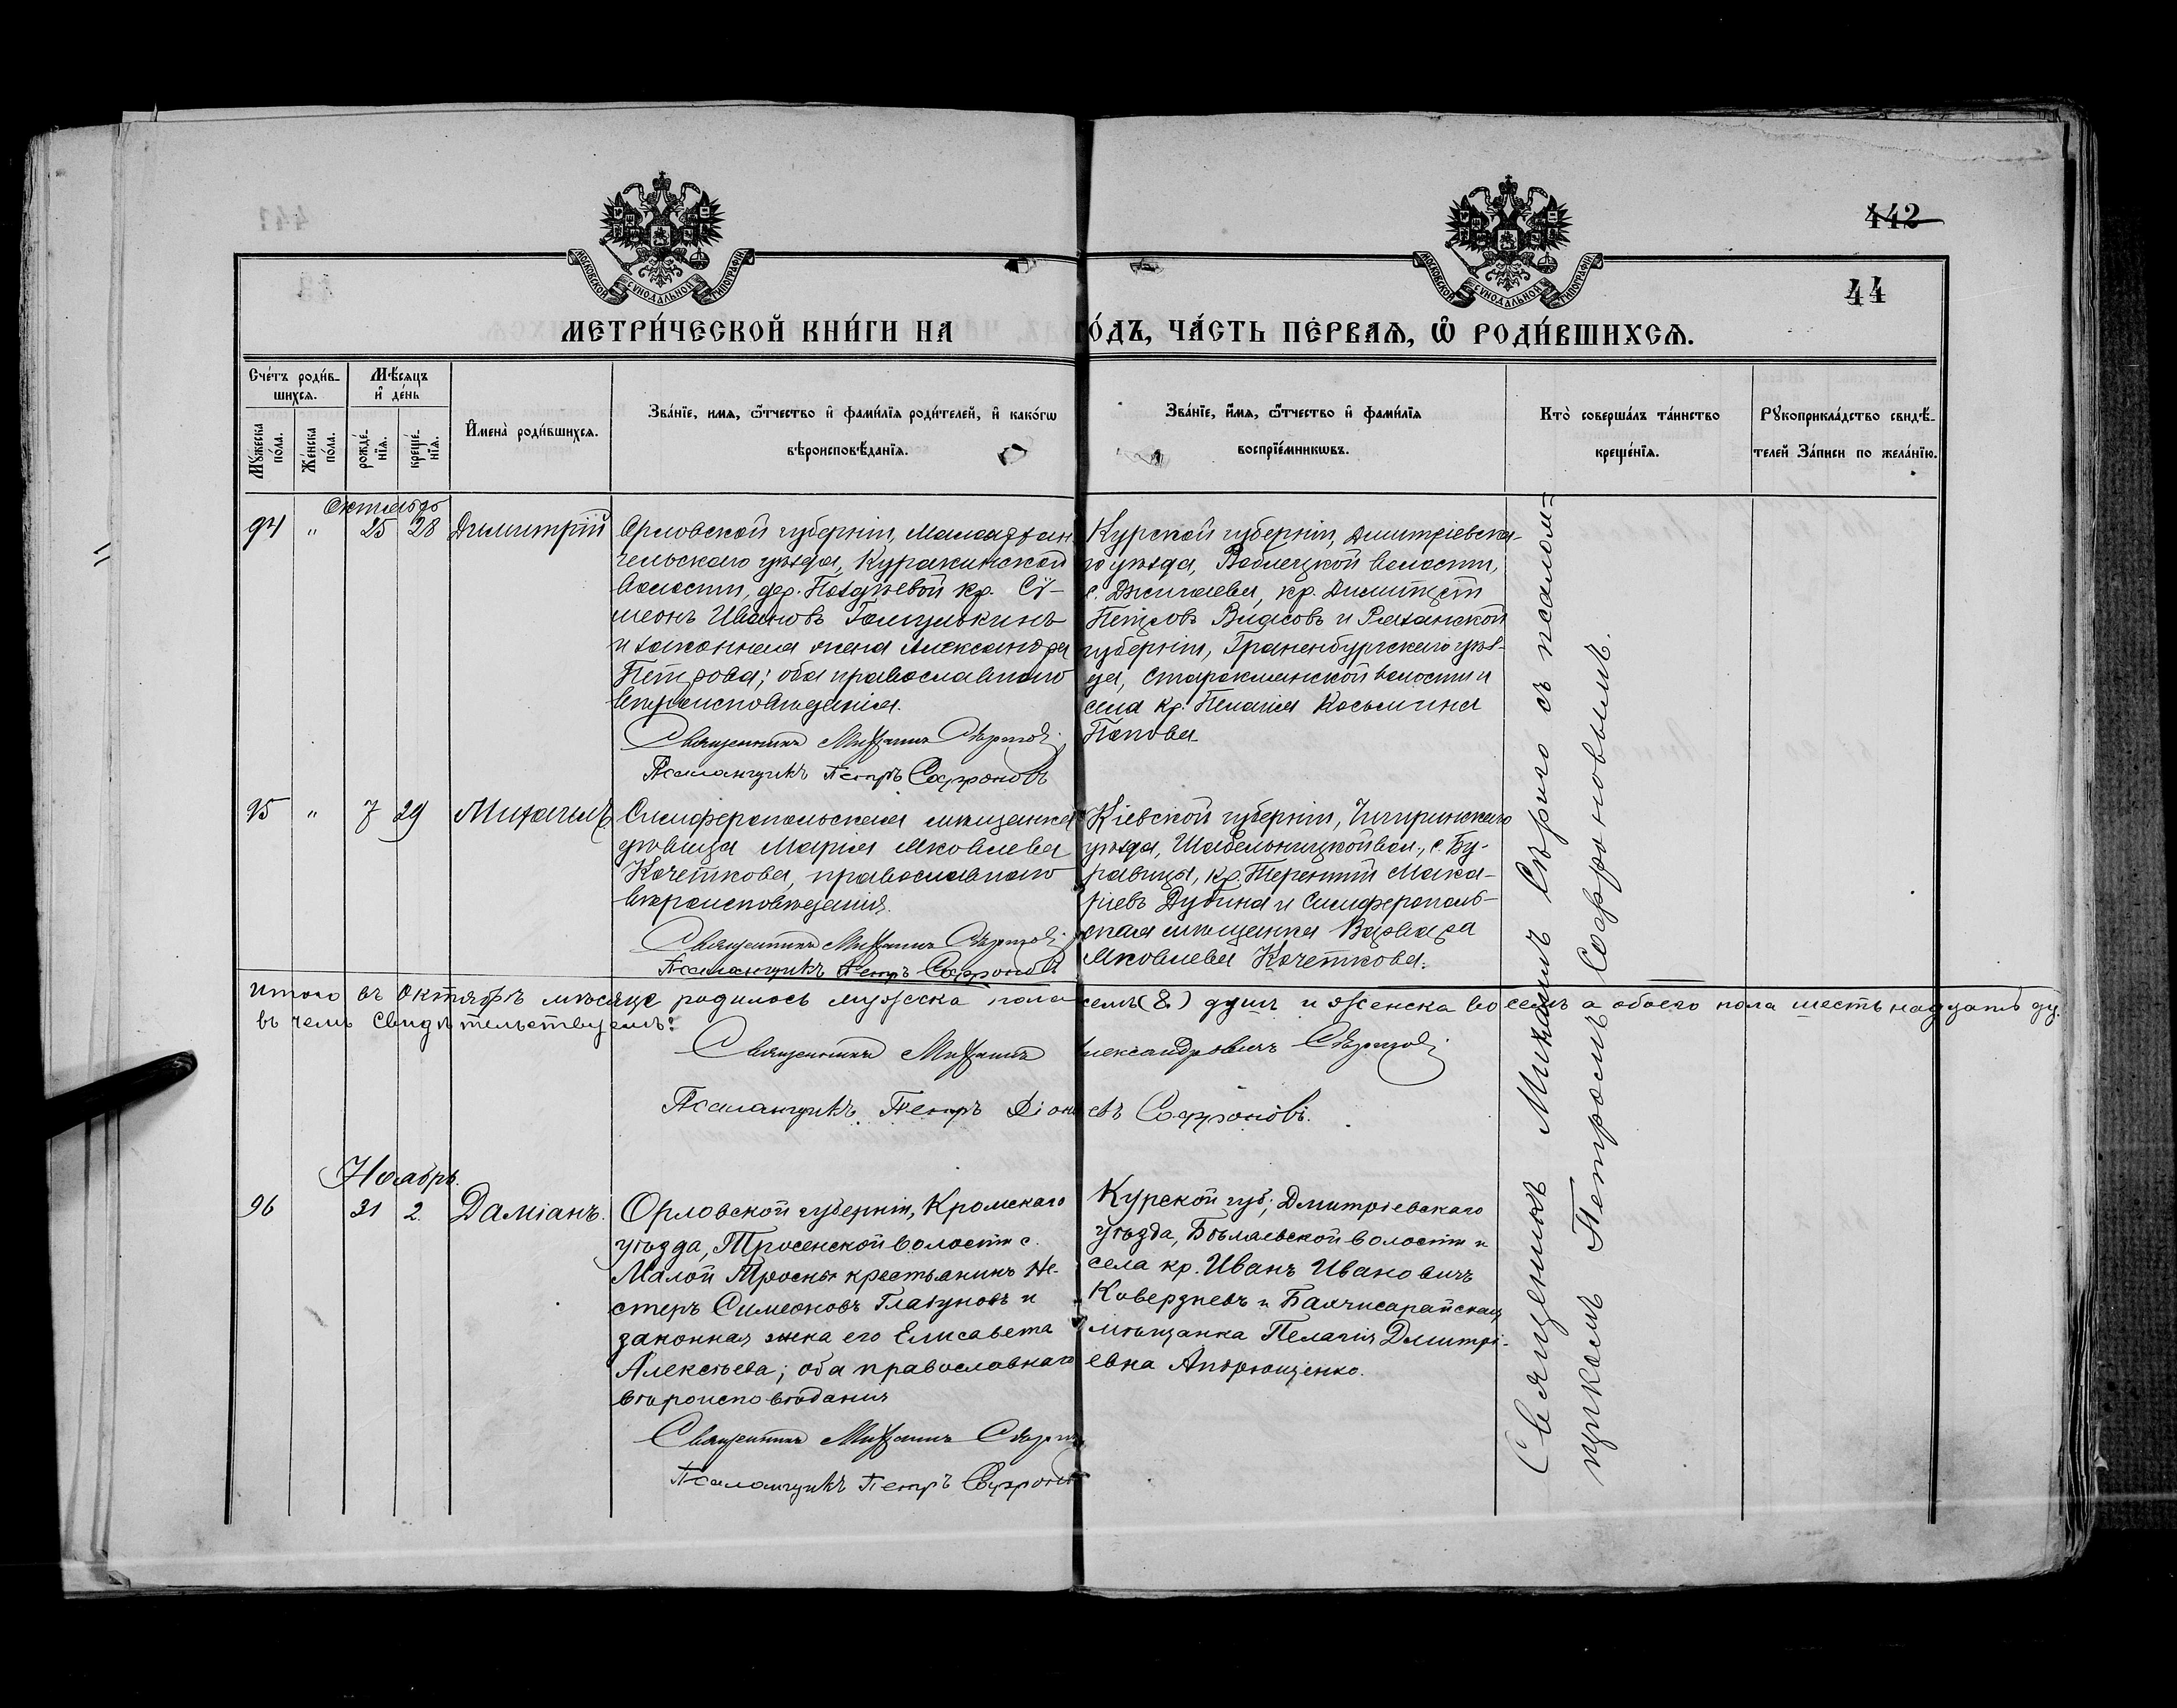 442
44
МОСКОВСКОЙ СѴНОДАЛЬНОЙ ТИПОГРАФІИ
МОСКОВСКОЙ СѴНОДАЛЬНОЙ ТИПОГРАФІИ
МЕТРИ́ЧЕСКОЙ КНИ́ГИ НА ГО́ДЪ, ЧА́СТЬ ПЕ́РВАѦ, Ѽ РОДИ́ВШИХСѦ.
Сче́тъ роди́в-
шихсѧ.
Мꙋ́жеска по́ла.
Же́нска по́ла.
Мѣ́сѧцъ
и҆ де́нь
рожде́-
нїѧ.
креще́-
нїѧ.
И҆мена̀ роди́вшихсѧ.
Зва́нїе, имѧ, ѻ҆́тчество и҆ фами́лїѧ роди́телей, и҆ како́гѡ
вѣроисповѣ́данїѧ.
Зва́нїе, и҆́мѧ, ѻ҆́тчество и҆ фами́лїѧ
воспрїе́мникѡвъ.
Кто̀ соверша́лъ та́инство
креще́нїѧ.
Рꙋкоприкла́дство свидѣ́-
телей За́писи по жела́нїю.
Октябрь
94 " 25 28 Димитрій
Орловской губерніи, Малоархан
гельскаго уѣзда, Куракинской
волости, дер. Позднѣевой кр. Сѵ-
меонъ Ивановъ
и законная жена Александра
Петрова; оба православнаго
вѣроисповѣданія.
Священникъ Михаилъ Сѣрый
Псаломщикъ Петръ Софроновъ
Курской губерніи, Димитріевска-
го уѣзда, волости,
с. кр. Димитрій
Петровъ и Рязанской
губерніи, Раненбургскаго уѣз-
да, волости и
села кр. Пелагія Косьмина
Попова
95 " 7 29 Михаилъ
Симферопольская мѣщанка
дѣвица Марія Яковлева
Кочеткова, православнаго
вѣроисповѣданія.
Священникъ Михаилъ Сѣрый
Псаломщикъ Петръ Софроновъ
Кіевской губерніи, Чигиринскаго
уѣзда, Шабельницкой вол., с. Бу-
равицы, кр. Терентій Мака-
ріевъ Дубина и Симферополь-
ская мѣщанка Варвара
Яковлева Кочеткова.
Итого въ Октябрѣ мѣсяцѣ родилось мужска пола семь (8) душъ и женска восемь а обоего пола шестьнадцать ду.
въ чемъ свидѣтельствуемъ:
Священникъ Михаилъ Александровичъ Сѣрый
Псаломщикъ Петръ Софроновъ.
Ноябрь.
96 31 2. Даміанъ.
Орловской губерніи, Кромскаго
уѣзда, Тросенской волости с.
Малой Тросны крестьянинъ Не-
стеръ Симеоновъ Глазуновъ и
законная жена его Елисавета
Алексѣева; оба православнаго
вѣроисповѣданія
Священникъ Михаилъ Сѣрый
Псаломщикъ Петръ Софроновъ
Курской губ., Дмитріевскаго
уѣзда, Бѣляевской волости и
села кр. Иванъ Ивановичъ
Ковердневъ и Бахчисарайская
мѣщанка Пелагія Дмитрі-
евна Андрющенко.
Священникъ Михаилъ Сѣрый съ псалом-
щикомъ Петромъ Софроновымъ.